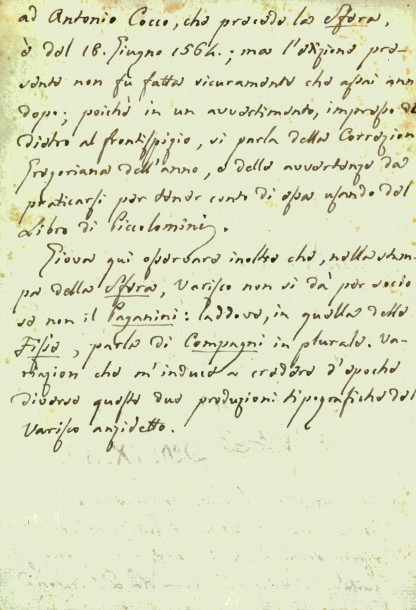 ad Antonio Cocco, che precede la Sfera,
è del 18. Giugno 1564.; ma l'edizione pre-
sente non fù fatta sicuramente che assai ann
dopo; poichè in un avvertimento, impresso di
dietro al frontispizio, si parla della Correzion
Gregoriana dell'anno, e delle avvertenze da
praticarsi per tener conto di essa usando del
Libro di Piccolomini.
Giova qui osservare inoltre che, nella stam-
pa della Sfera, Varisco non si dà per socio
se non il Paganini: laddove, in quella della
Fisic, parla di Compagni in plurale. Va-
riazion che m'induce a credere d'epoche
diverse queste due produzioni tipografiche del
Varisco anzidetto.